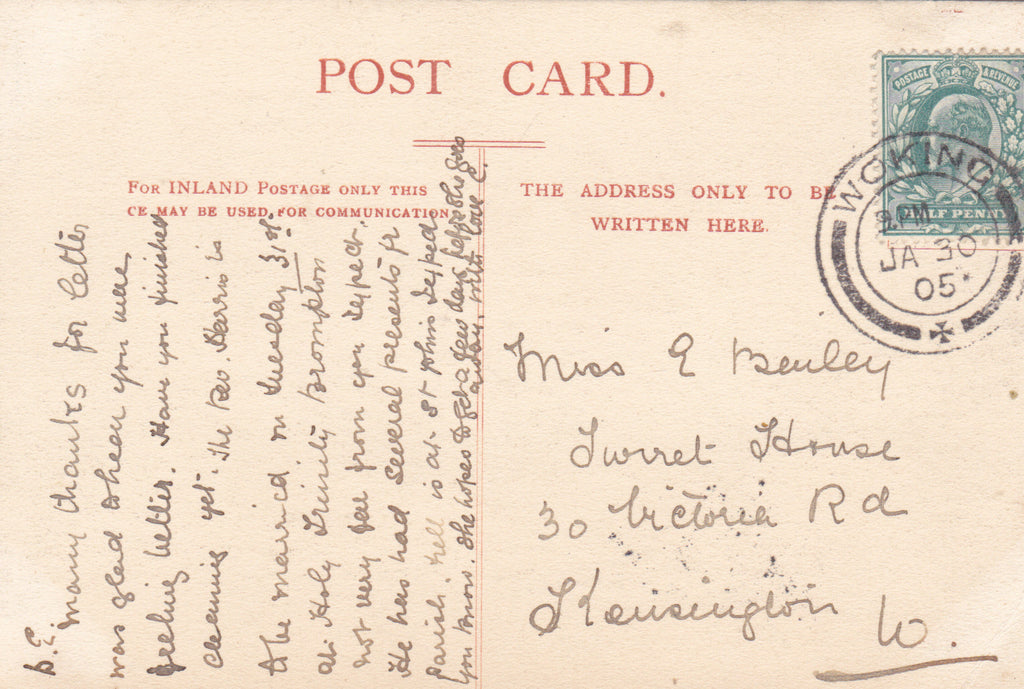 POST CARD.
FOR INLAND POSTAGE ONLY THIS
CE MAY BE USED FOR COMMUNICATION
THE ADDRESS ONLY TO BE
WRITTEN HERE.
POSTAGE & REVENUE
HALF PENNY
WOKING
8 PM
JA 30
05
D. E.
Many thanks for letter
was glad to hear you were
feeling better. Have you finished
cleaning yet. The Rev. Harris is
to be married on Tuesday 31st.
at Holy Trinity Brompton
not very far from you I expect.
He has had several presents fr
parish. Nell is at St Johns I expect
you know. She hopes to get a few days before she goes
away with love E.
Miss E Benley
Turret House
30 Victoria Rd
Kensington
W.